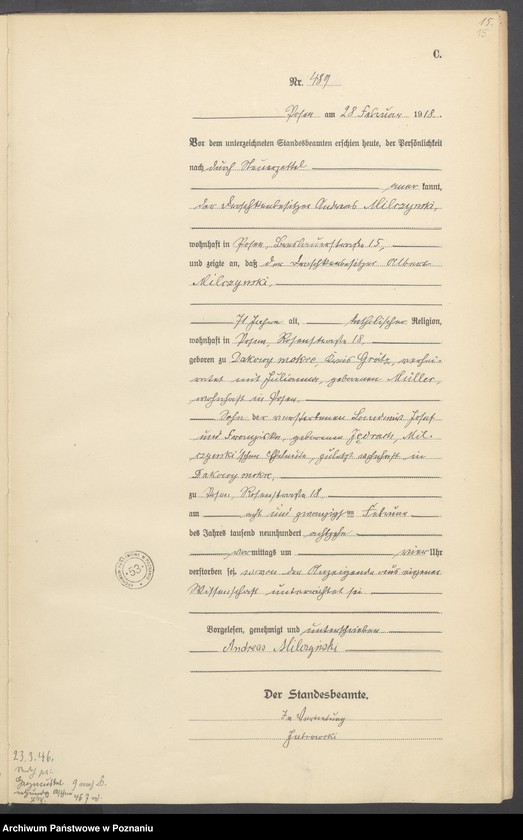 15.
15
C.
Nr. 489
Posen am 28 Februar 1918.
Vor dem unterzeichneten Standesbeamten erschien heute, der Persönlichkeit
nach durch Steuerzettel
aner kannt,
der Droschkenbesitzer Andreas Milczynski,
wohnhaft in Posen, Breslauerstraße 15,
und zeigte an, daß der Droschkenbesitzer Albert
Milczynski,
71 Jahre alt, katholischer Religion,
wohnhaft in Posen, Rosenstraße 18,
geboren zu Dakowy mokre, Kreis Grätz, verhei-
ratet mit Julianna, geborenen Müller,
wohnhaft in Posen.
Sohn der verstorbenen Josef
und Franziska, geborenen Jędrach, Mil-
czynski'schen Eheleute, zuletzt wohnhaft in
Dakowy mokre,
zu Posen, Rosenstraße 18.
am acht und zwanzigsten Februar
des Jahres tausend neunhundert achtzehn
vormittags um vier Uhr
verstorben sei, wovon der Anzeigende aus eigener
Wissenschaft unterrichtet sei
Vorgelesen, genehmigt und unterschrieben
Andreas Milczyński
Der Standesbeamte.
In Vertretung
53
23.3.46.
Archiwum Państwowe w Poznaniu